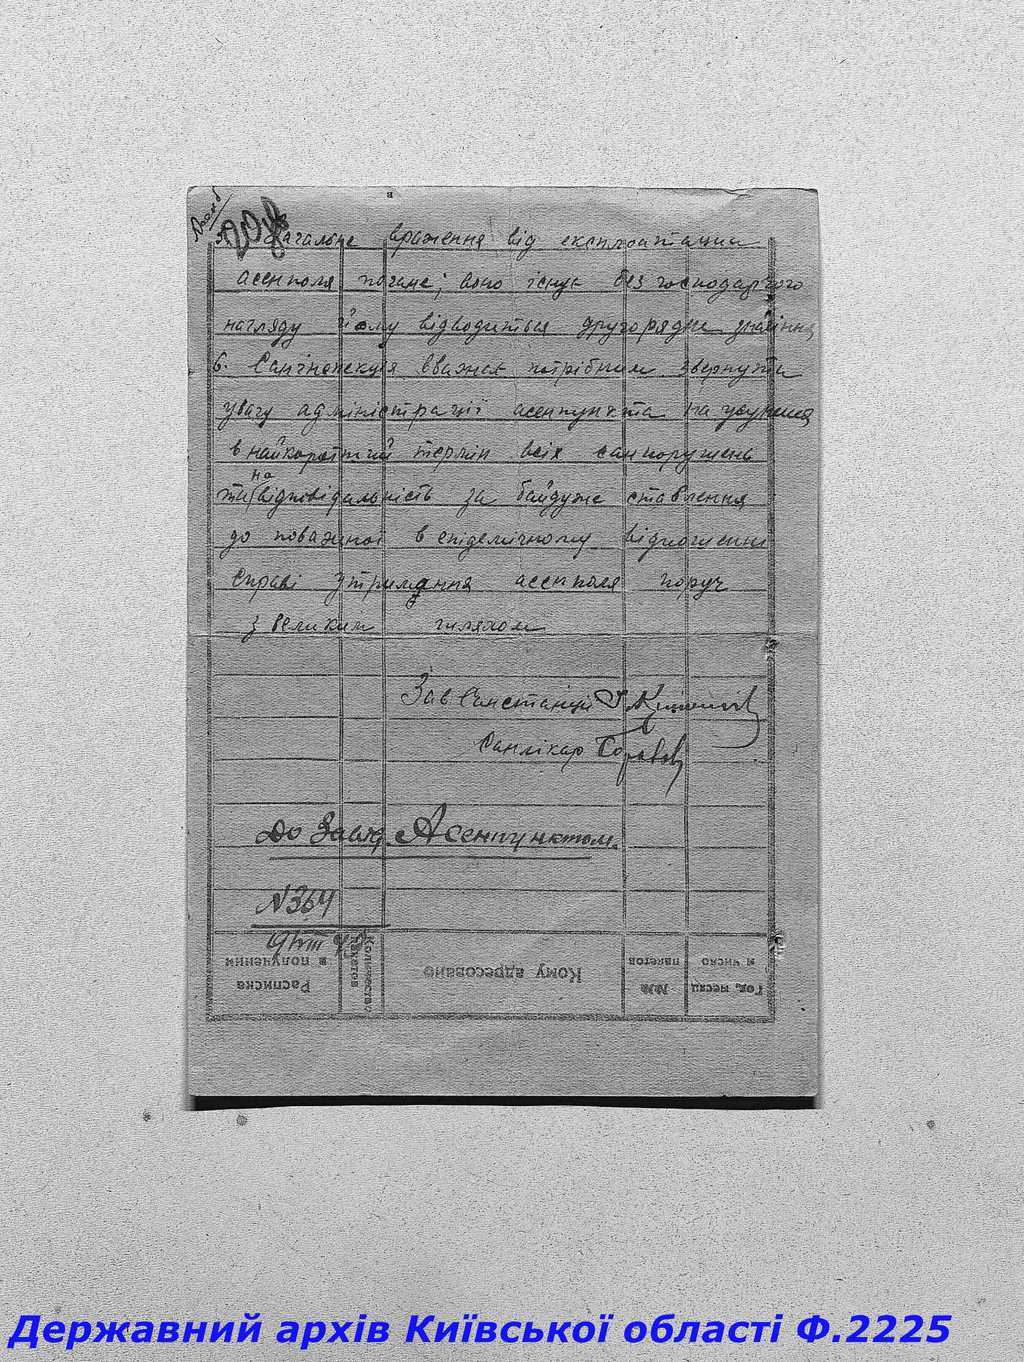 5. Загальне враження від експлоатации
асенполя погане; воно існує без господарчого
нагляду йому відводиться другорядне значіння
6. Санінспекція вважає потрібним звернути
увагу адміністрації асенпункта на усунення
в найкоротший термін всіх санпорушень
на
та відповідальність за байдуже ставлення
до поважної в епідемічному відношенні
справі утримання асенполя поруч
з великим шляхом
Зав Санстанції
Санлікар
До Завід. Асенпунктом.
№ 364
Расписка в получении
Количество пакетов
Кому адресовано
№№ пакетов
Год, месяц и число
Державний архів Київської області Ф.2225